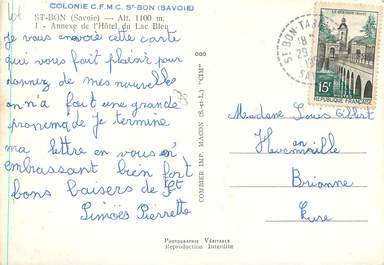 COLONIE C.F.M.C. ST-BON (SAVOIE)
ST-BON (Savoie) — Alt. 1100 m.
1 - Annexe de l'Hôtel du Lac Bleu
je vous envoie cette carte
qui vous fait plaisir pour
donnez de mes nouvelle
on n'a fait une grande
promenade je termine
ma lettre en vous en
embrassant bien fort
bons baisers de St
Simoës Pierrette
COMBIER IMP. MACON (S.-et-L.) "CIM"
PHOTOGRAPHIE VÉRITABLE
Reproduction Interdite
ST BON TAR
15F
RÉPUBLIQUE FRANÇAISE
Madame Louis Gilbert
Brionne
Eure